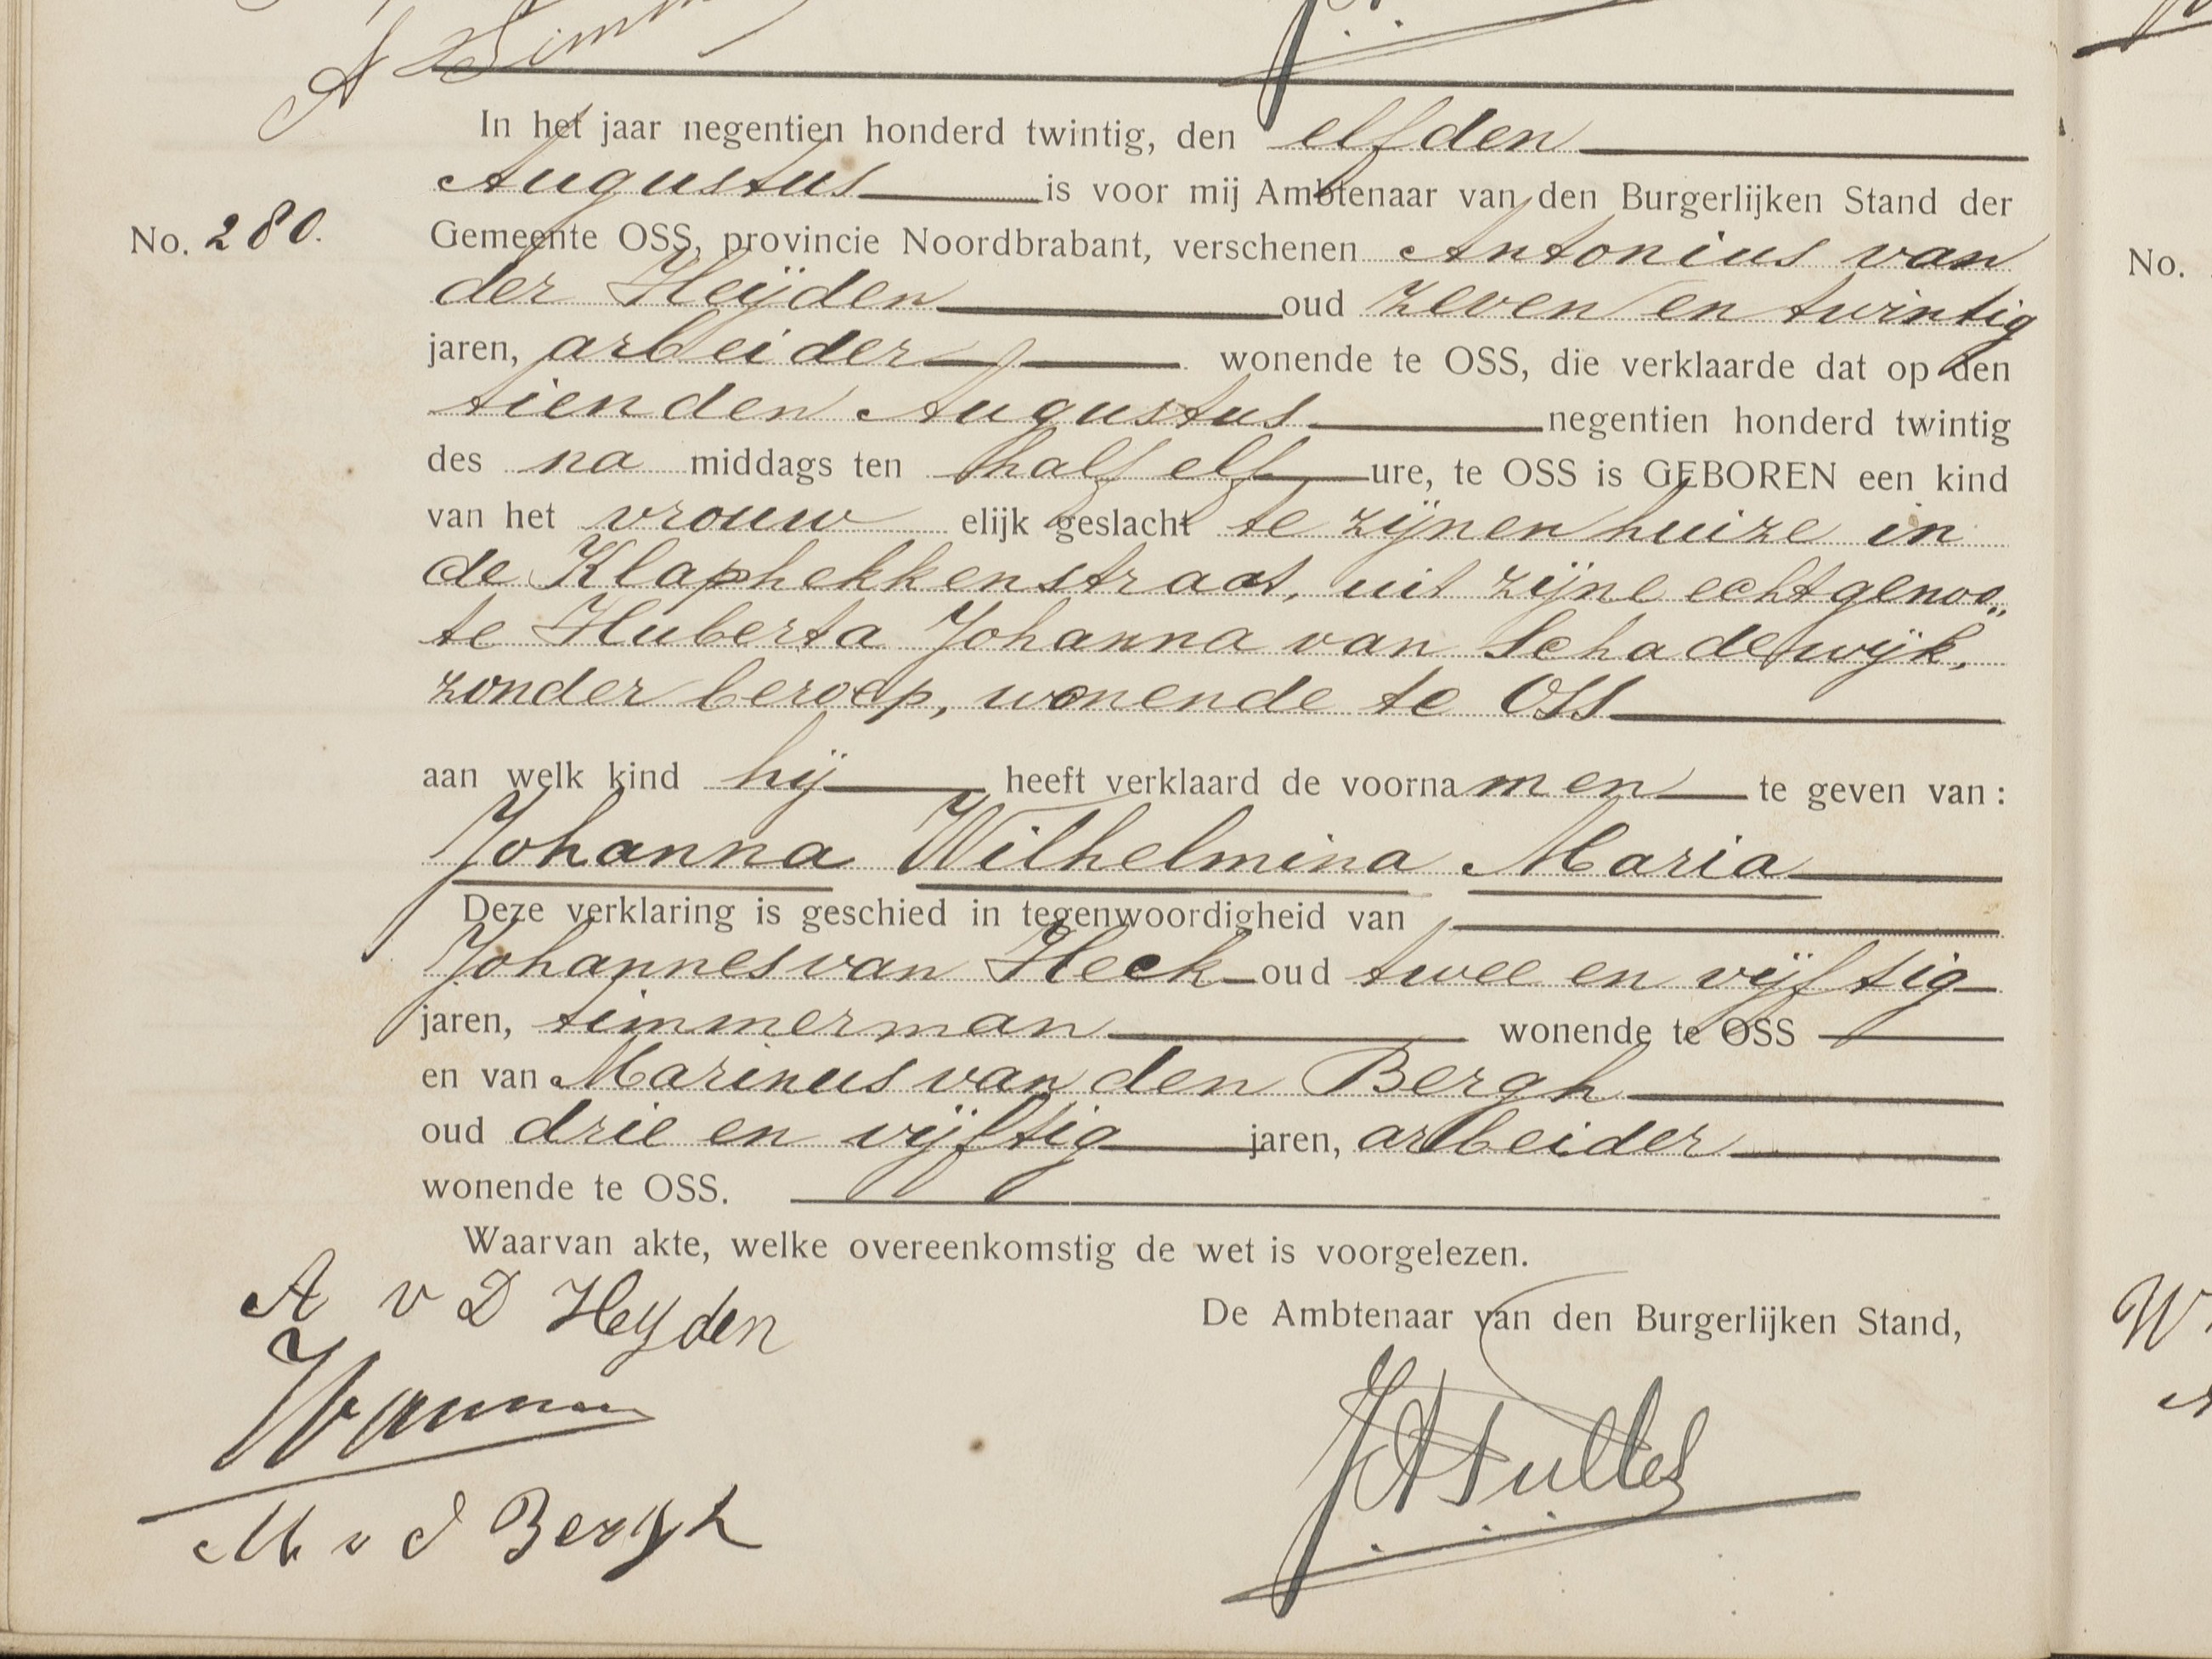 A
In het jaar negentien honderd twintig, den elfden
Augustus is voor mij Ambtenaar van den Burgerlijken Stand der
No. 280.
Gemeente OSS, provincie Noordbrabant, verschenen Antonius van
No.
der Heÿden oud zeven en twintig
jaren, arbeider wonende te OSS, die verklaarde dat op den
tienden Augustus negentien honderd twintig
des na middags ten half elf ure, te OSS is GEBOREN een kind
van het vrouw elijk geslacht te zijnen huize in
de Klaphekkenstraat, uit zijne echtgenoo„
te Huberta Johanna van Schadewijk,
zonder beroep, wonende te Oss
aan welk kind hij heeft verklaard de voornamen te geven van:
Johanna Wilhelmina Maria
Deze verklaring is geschied in tegenwoordigheid van
Johannes van Heck oud twee en vijftig
jaren, timmerman wonende te OSS
en van Marinus van den Bergh
oud drie en vijftig jaren, arbeider
wonende te OSS.
Waarvan akte, welke overeenkomstig de wet is voorgelezen.
A v D Heyden
De Ambtenaar van den Burgerlijken Stand,
M v d Bergh